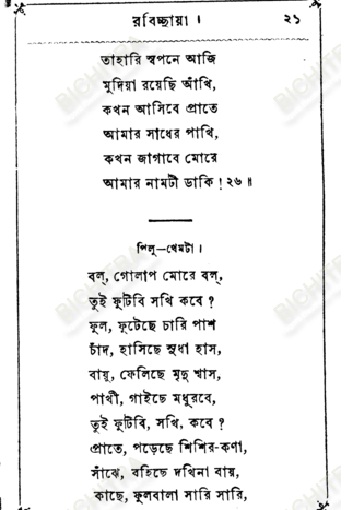 রবিচ্ছায়া । ২১
তাহারি স্বপনে আজি
মুদিয়া রয়েছি আঁখি,
কখন আসিবে প্রাতে
আমার সাধের পাখি,
কখন জাগাবে মোরে
আমার নামটী ডাকি ! ২৬ ॥
পিলু—খেমটা ।
বল্, গোলাপ মোরে বল্,
তুই ফুটিবি সখি কবে ?
ফুল, ফুটেছে চারি পাশ
চাঁদ, হাসিছে সুধা হাস,
বায়ু, ফেলিছে মৃদু শ্বাস,
পাখী, গাইছে মধুরবে,
তুই ফুটিবি, সখি, কবে ?
প্রাতে, পড়েছে শিশির-কণা,
সাঁঝে, বহিছে দখিনা বায়,
কাছে, ফুলবালা সারি সারি,